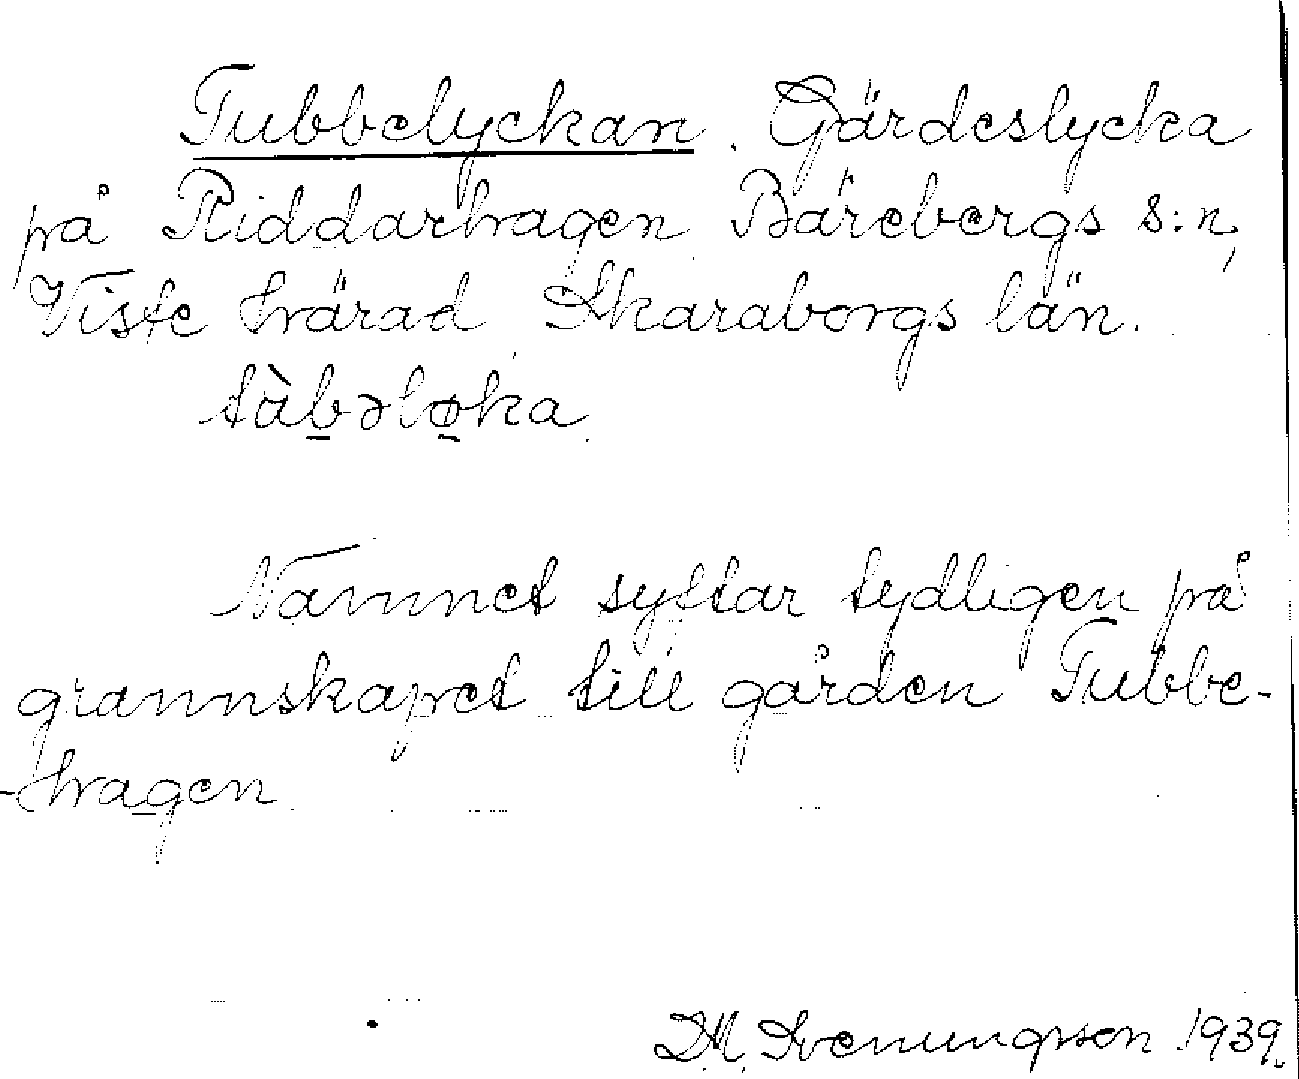 Tubbelyckan. Gärdeslycka
på Riddarhagen Bärebergs s:n,
Viste härad Skaraborgs län.
tàb̲əlø̲ka.
Namnet syftar tydligen på
grannskapet till gården Tubbe-
-hagen
D.M. Svenungsson 1939.